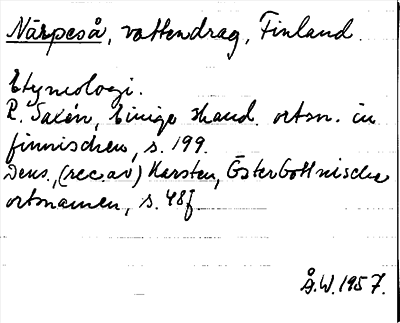 Närpeså, vattendrag, Finland.
Etymologi.
R. Saxén, Einige skand. ortsn. in
finnischen, s. 199.
Dens., (rec. av) Karsten, Österbottnische
ortsnamen, s. 48f.
Å.W. 1957.